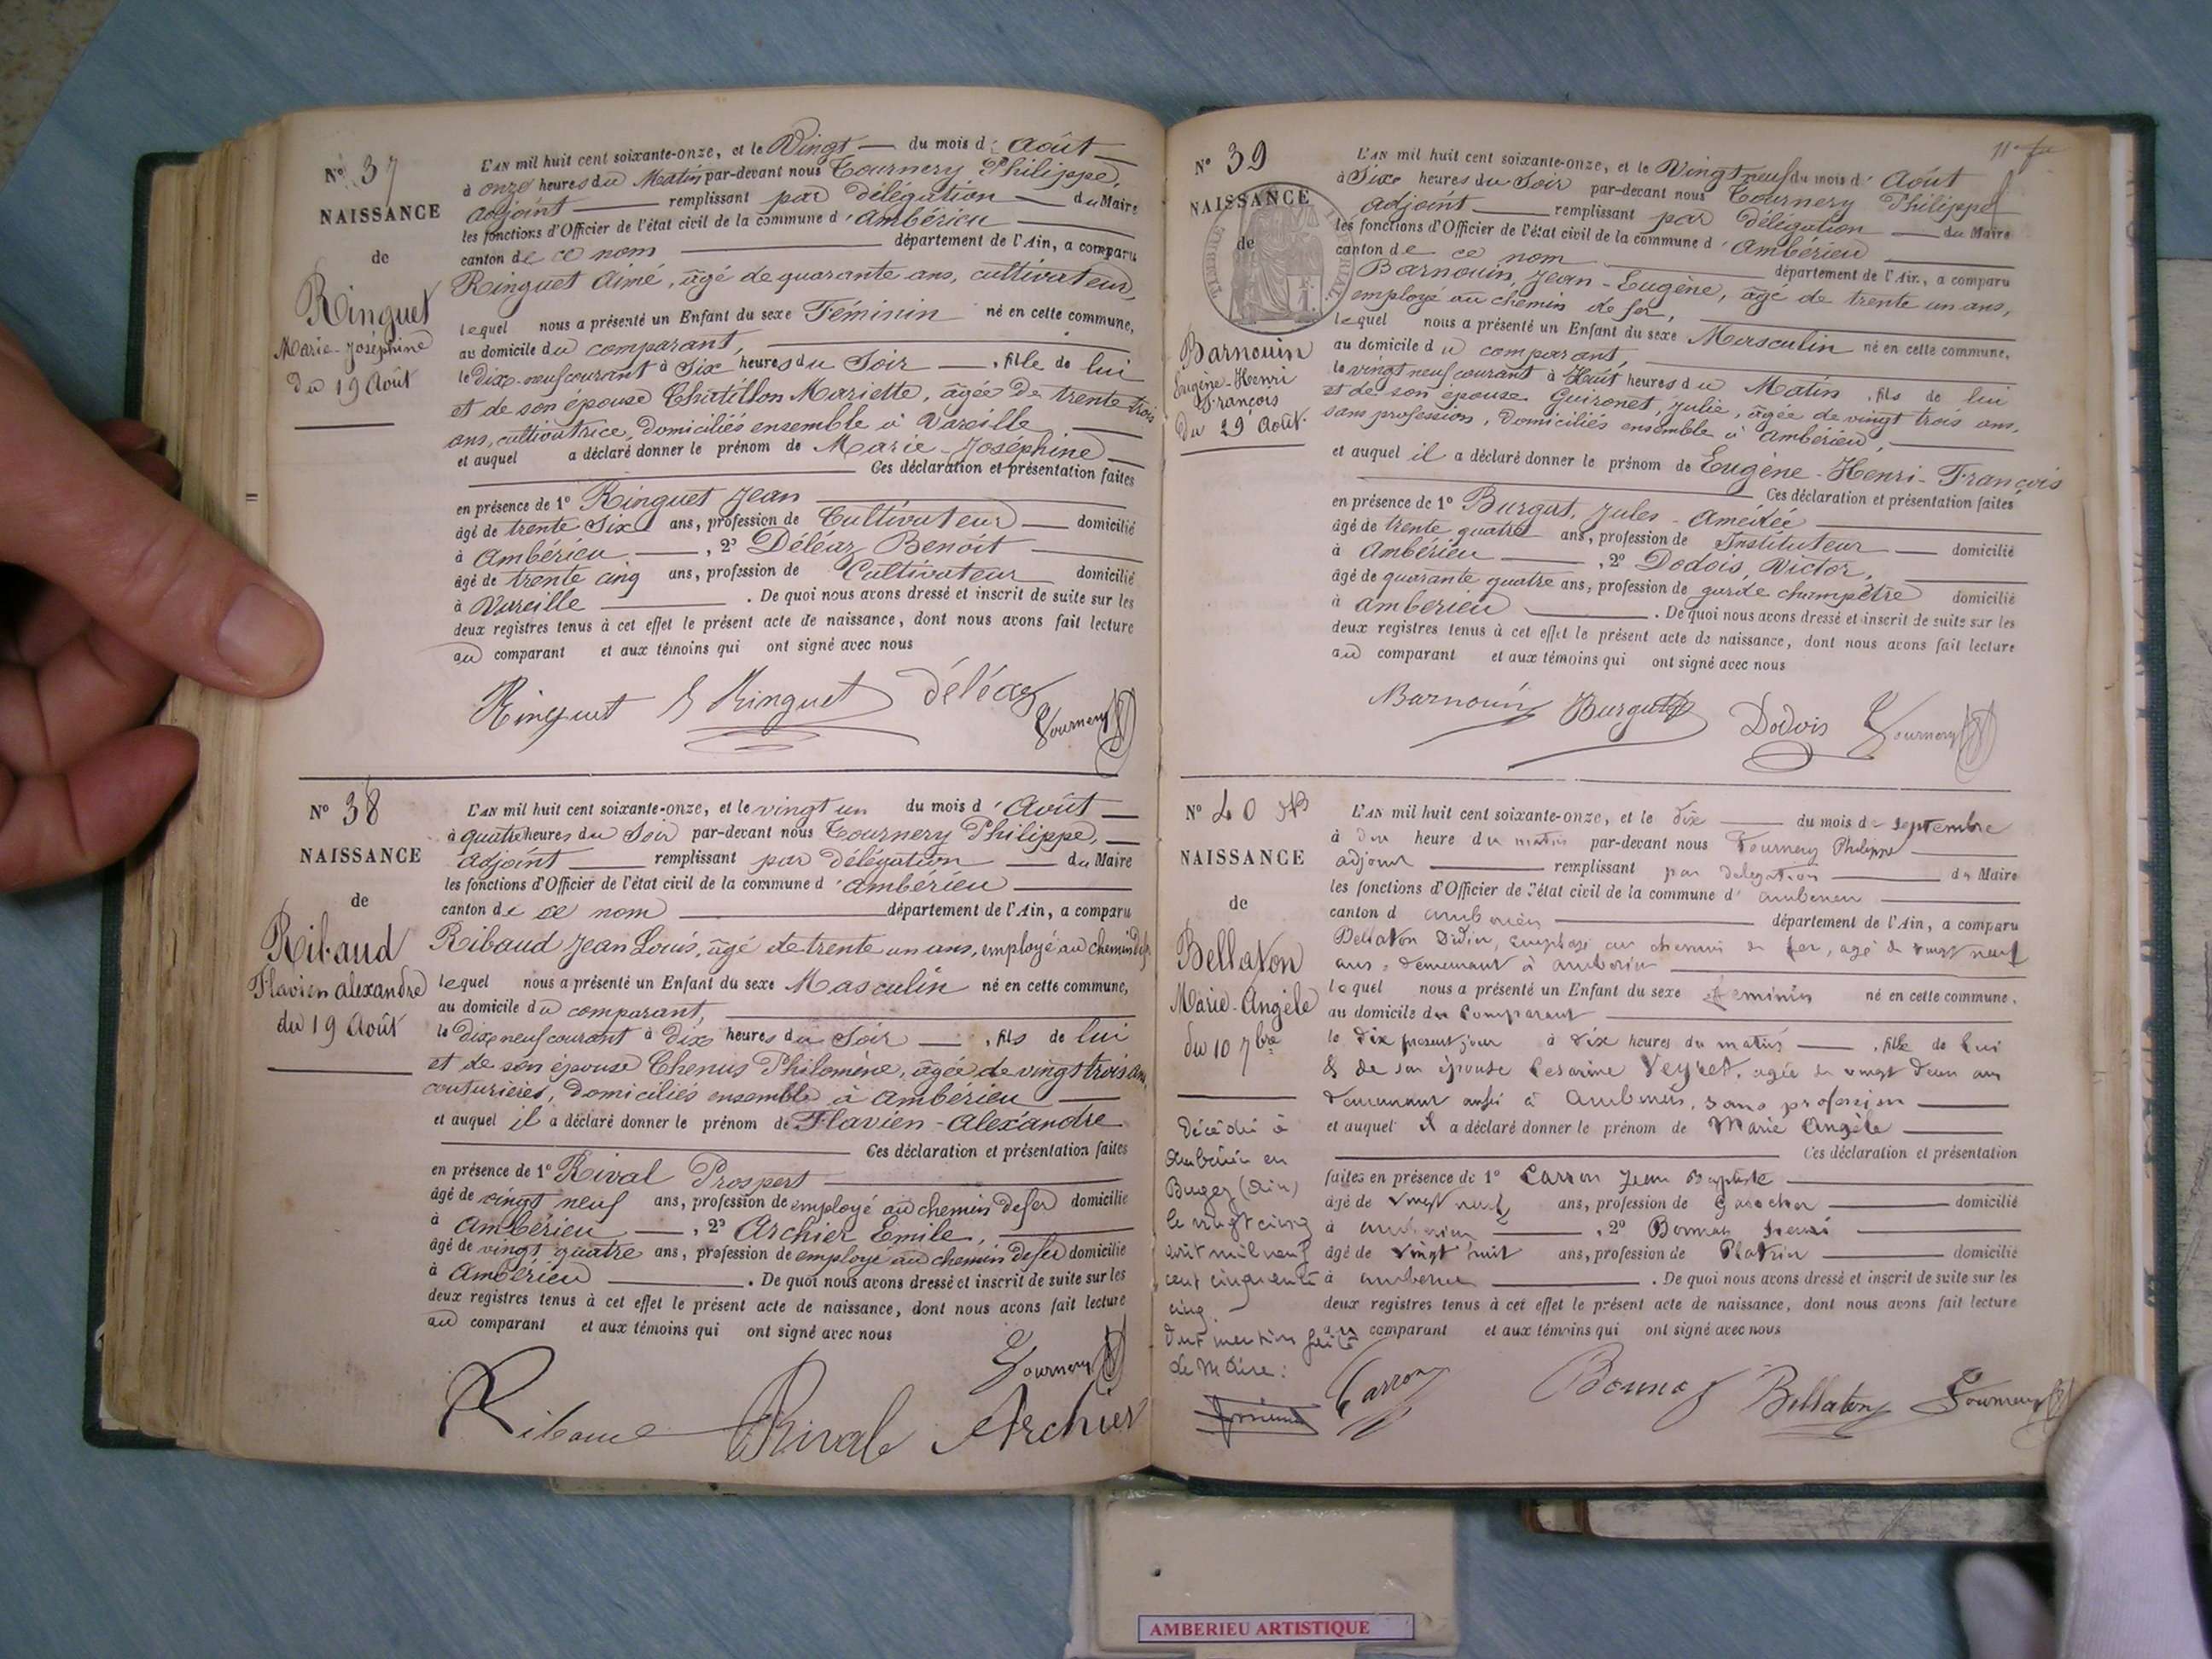 N° 37
NAISSANCE
de
Ringuet
Marie-Joséphine
du 19 Août
L'AN mil huit cent soixante-onze, et le Vingt du mois d' Août
à onze heures du Matin par-devant nous Tournery Philippe,
adjoint remplissant par délégation du Maire
les fonctions d'Officier de l'état civil de la commune d'Ambérieu
canton de ce nom département de l'Ain, a comparu
Ringuet Aimé, âgé de quarante ans, cultivateur,
lequel nous a présenté un Enfant du sexe Féminin né en cette commune,
au domicile du comparant,
le dix-neuf courant à Six heures du Soir, fille de lui
et de son épouse Chatillon Mariette, âgée de trente trois
ans, cultivatrice, domiciliés ensemble à Vareille
et auquel a déclaré donner le prénom de Marie-Joséphine
Ces déclaration et présentation faites
en présence de 1° Ringuet Jean
âgé de trente Six ans, profession de Cultivateur domicilié
à Ambérieu, 2° Déléaz Benoît
âgé de trente cinq ans, profession de Cultivateur domicilié
à Vareille. De quoi nous avons dressé et inscrit de suite sur les
deux registres tenus à cet effet le présent acte de naissance, dont nous avons fait lecture
au comparant et aux témoins qui ont signé avec nous
Ringuet Ringuet Déléaz
Tournery
N° 38
NAISSANCE
de
Ribaud
Flavien Alexandre
du 19 Août
L'AN mil huit cent soixante-onze, et le vingt un du mois d'Août
à quatre heures du Soir par-devant nous Tournery Philippe,
adjoint remplissant par délégation du Maire
les fonctions d'Officier de l'état civil de la commune d'Ambérieu
canton de ce nom département de l'Ain, a comparu
Ribaud Jean Louis, âgé de trente un ans, employé au chemin de fer
lequel nous a présenté un Enfant du sexe Masculin né en cette commune,
au domicile du comparant,
le dix neuf courant à dix heures du Soir, fils de lui
et de son épouse Chenus Philomène, âgée de vingt trois ans,
couturières, domiciliés ensemble à Ambérieu
et auquel il a déclaré donner le prénom de Flavien-Alexandre
Ces déclaration et présentation faites
en présence de 1° Rival Prospert
âgé de vingt neuf ans, profession de employé au chemin de fer domicilié
à Ambérieu, 2° Archier Emile,
âgé de vingt quatre ans, profession de employé au chemin de fer domicilié
à Ambérieu. De quoi nous avons dressé et inscrit de suite sur les
deux registres tenus à cet effet le présent acte de naissance, dont nous avons fait lecture
au comparant et aux témoins qui ont signé avec nous
Tournery
Ribaud Rival Archier
N° 39
NAISSANCE
de
TIMBRE IMPÉRIAL
Barnouin
Eugène-Henri
François
Du 29 Août
L'AN mil huit cent soixante-onze, et le Vingt neuf du mois d'Août
à Six heures du Soir par-devant nous Tournery Philippe
adjoint remplissant par délégation du Maire
les fonctions d'Officier de l'état civil de la commune d'Ambérieu
canton de ce nom département de l'Ain, a comparu
Barnouin, Jean-Eugène, âgé de trente un ans,
employé au chemin de fer,
lequel nous a présenté un Enfant du sexe Masculin né en cette commune,
au domicile du comparant,
le vingt neuf courant à Huit heures du Matin, fils de lui
et de son épouse Guironet, Julie, âgée de vingt trois ans,
sans profession, domiciliés ensemble à Ambérieu
et auquel il a déclaré donner le prénom de Eugène-Henri-François
Ces déclaration et présentation faites
en présence de 1° Burgat, Jules-Amédée
âgé de trente quatre ans, profession de Instituteur domicilié
à Ambérieu, 2° Dodois, Victor,
âgé de quarante quatre ans, profession de garde champêtre domicilié
à Ambérieu. De quoi nous avons dressé et inscrit de suite sur les
deux registres tenus à cet effet le présent acte de naissance, dont nous avons fait lecture
au comparant et aux témoins qui ont signé avec nous
Barnouin Burgat Dodois Tournery
N° 40
NAISSANCE
de
Bellaton
Marie-Angèle
du 10 7bre
Décédée à
Ambérieu en
Bugey (Ain)
le vingt cinq
août mil neuf
cent cinquante
cinq
Dont mention faite
Le Maire:
L'AN mil huit cent soixante-onze, et le dix du mois de Septembre
à heure du matin par-devant nous Tournery Philippe
adjoint remplissant par délégation du Maire
les fonctions d'Officier de l'état civil de la commune d'Ambérieu
canton d'Ambérieu département de l'Ain, a comparu
Bellaton Didier, employé au chemin de fer, agé de vingt neuf
ans, demeurant à Ambérieu
lequel nous a présenté un Enfant du sexe féminin né en cette commune,
au domicile du Comparant
le dix présent jour à dix heures du matin, fille de lui
& de son épouse Césarine Veyret, agée de vingt deux ans
demeurant aussi à Ambérieu, sans profession
et auquel il a déclaré donner le prénom de Marie Angèle
Ces déclaration et présentation
faites en présence de 1° Carron Jean Baptiste
âgé de vingt neuf ans, profession de domicilié
à Ambérieu, 2° Bonnaz
âgé de vingt huit ans, profession de Platrier domicilié
à Ambérieu. De quoi nous avons dressé et inscrit de suite sur les
deux registres tenus à cet effet le présent acte de naissance, dont nous avons fait lecture
au comparant et aux témoins qui ont signé avec nous
Carron Bonnaz Bellaton Tournery
AMBERIEU ARTISTIQUE